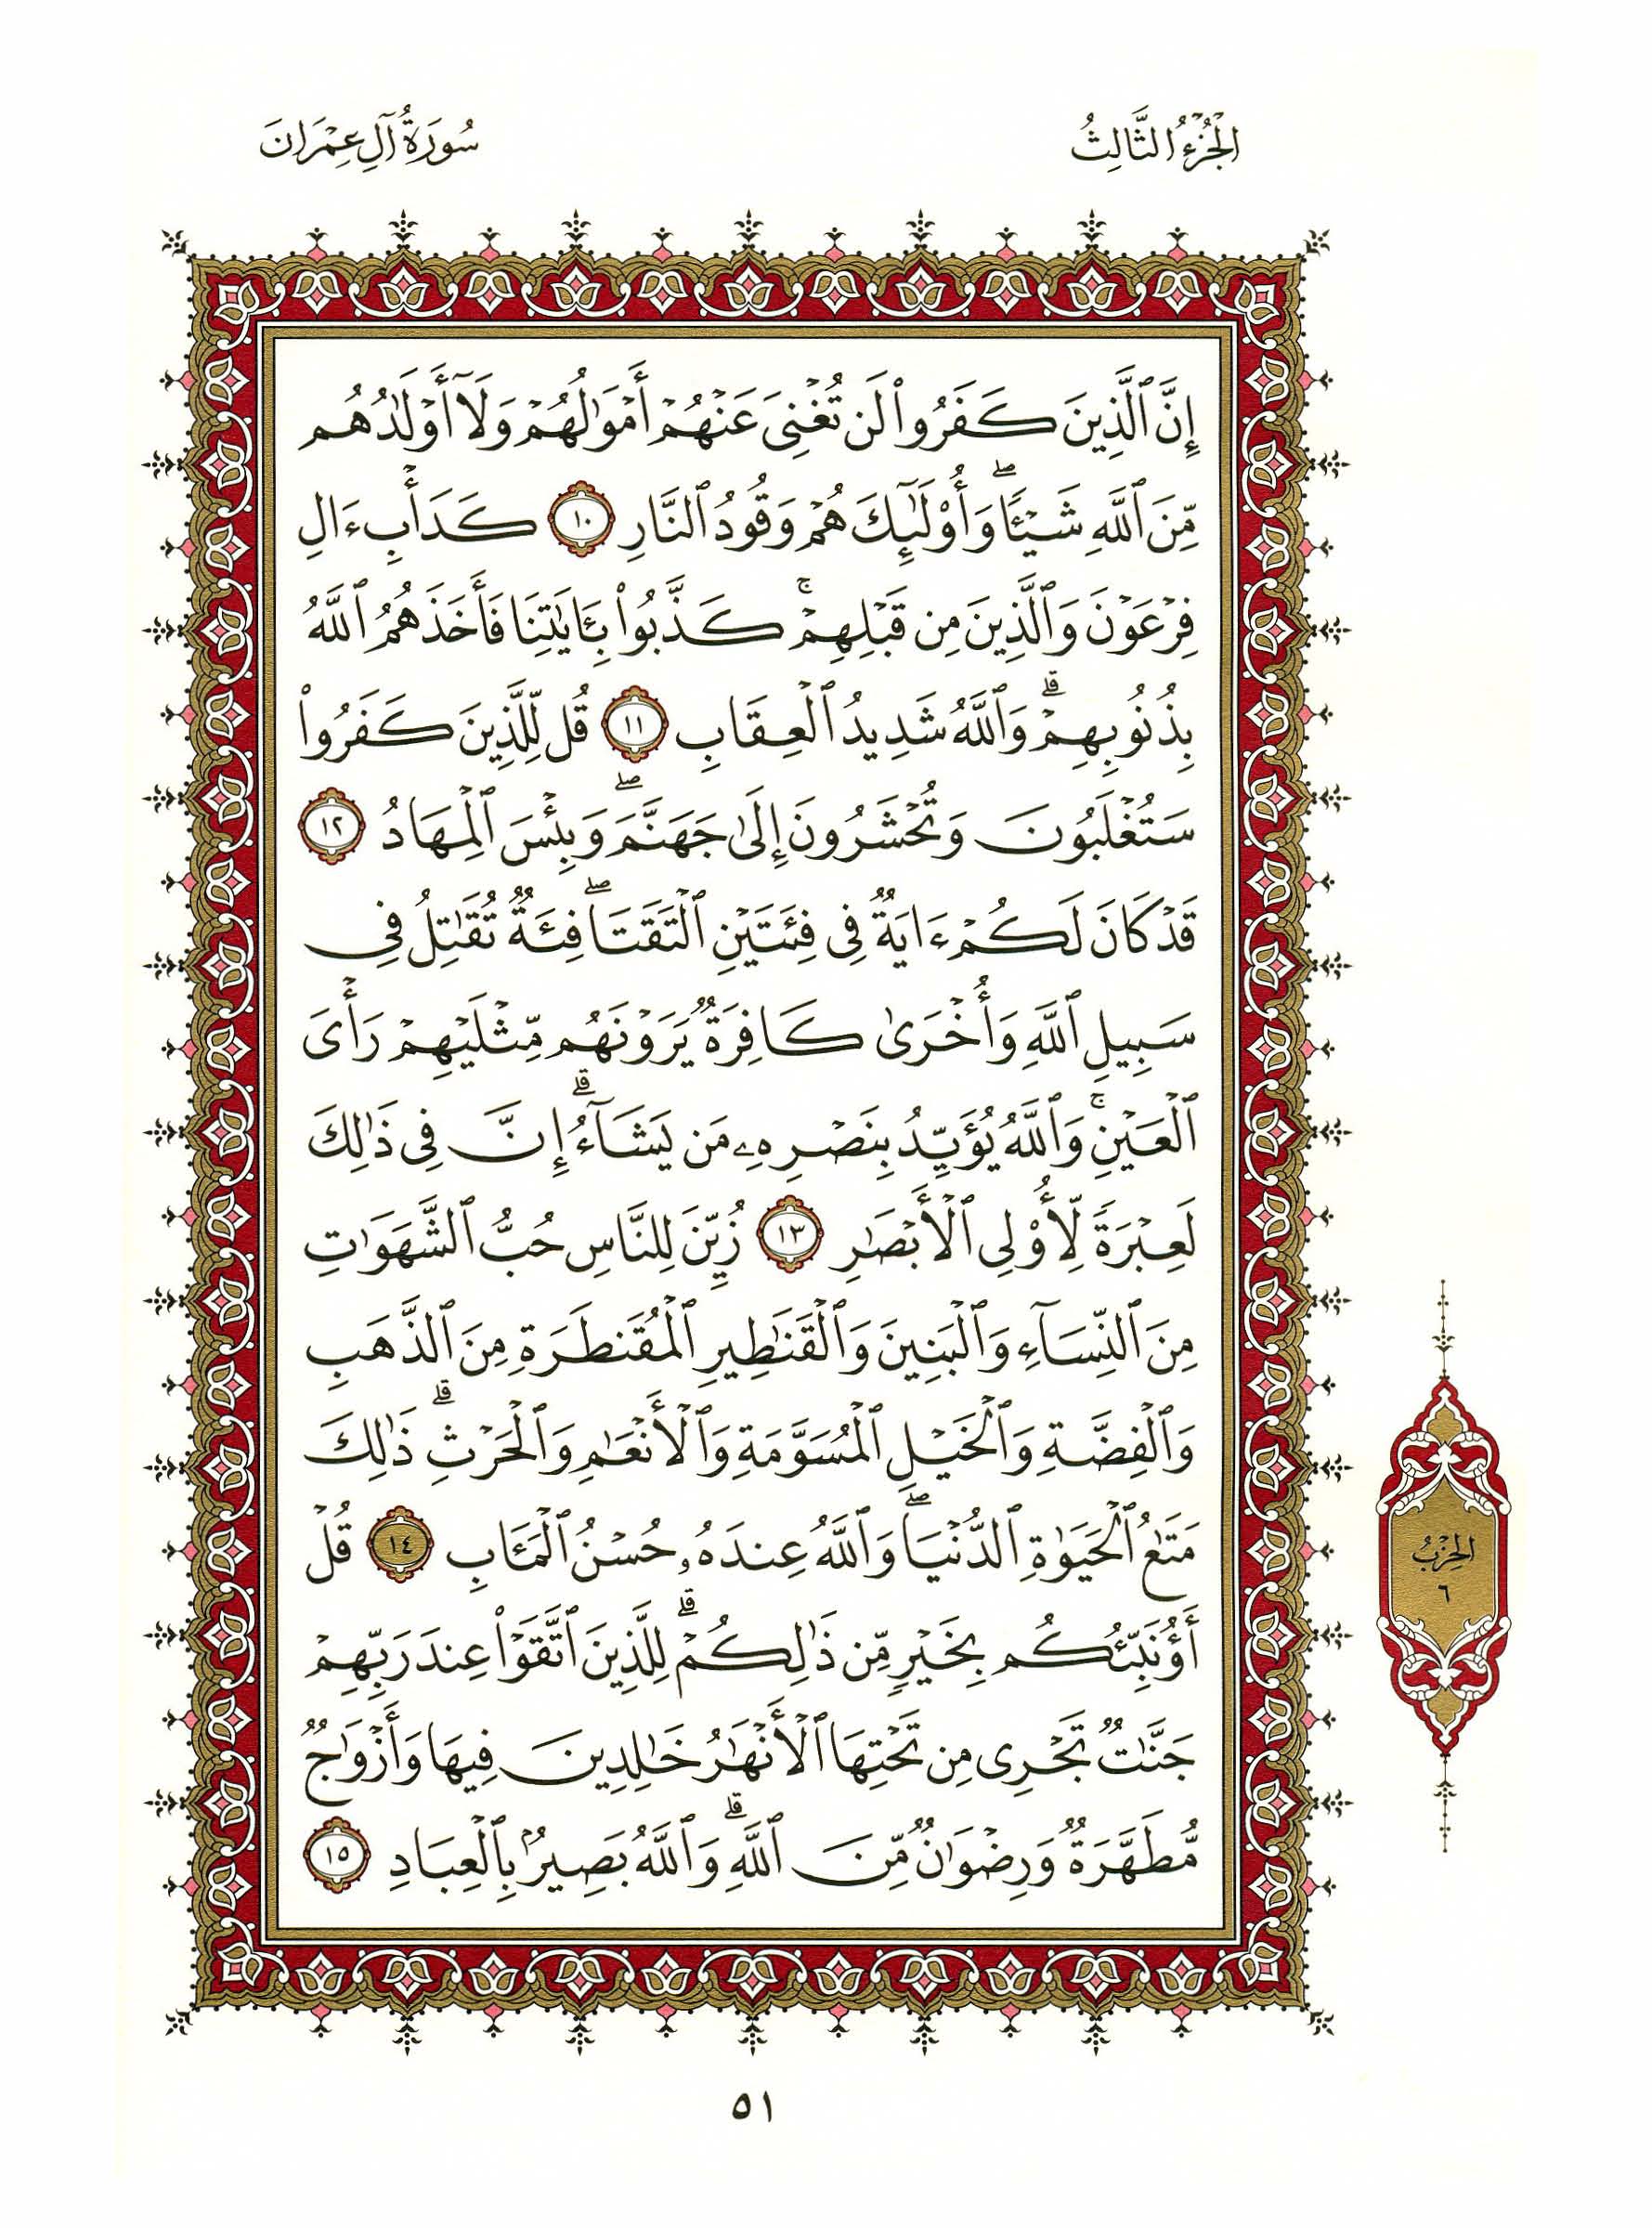 الجُزْءُ الثَّالِثُ
سُورَةُ آلِ عِمْرَانَ
إِنَّ ٱلَّذِينَ كَفَرُواْ لَن تُغْنِيَ عَنْهُمْ أَمْوَٰلُهُمْ وَلَآ أَوْلَٰدُهُم
مِّنَ ٱللَّهِ شَيْـًٔاۖ وَأُوْلَٰٓئِكَ هُمْ وَقُودُ ٱلنَّارِ ١٠ كَدَأْبِ ءَالِ
فِرْعَوْنَ وَٱلَّذِينَ مِن قَبْلِهِمْۚ كَذَّبُواْ بِـَٔايَٰتِنَا فَأَخَذَهُمُ ٱللَّهُ
بِذُنُوبِهِمْۗ وَٱللَّهُ شَدِيدُ ٱلْعِقَابِ ١١ قُل لِّلَّذِينَ كَفَرُواْ
سَتُغْلَبُونَ وَتُحْشَرُونَ إِلَىٰ جَهَنَّمَۖ وَبِئْسَ ٱلْمِهَادُ ١٢
قَدْ كَانَ لَكُمْ ءَايَةٌ فِي فِئَتَيْنِ ٱلْتَقَتَاۖ فِئَةٌ تُقَٰتِلُ فِي
سَبِيلِ ٱللَّهِ وَأُخْرَىٰ كَافِرَةٌ يَرَوْنَهُم مِّثْلَيْهِمْ رَأْيَ
ٱلْعَيْنِۚ وَٱللَّهُ يُؤَيِّدُ بِنَصْرِهِۦ مَن يَشَآءُۗ إِنَّ فِي ذَٰلِكَ
لَعِبْرَةً لِّأُوْلِي ٱلْأَبْصَٰرِ ١٣ زُيِّنَ لِلنَّاسِ حُبُّ ٱلشَّهَوَٰتِ
مِنَ ٱلنِّسَآءِ وَٱلْبَنِينَ وَٱلْقَنَٰطِيرِ ٱلْمُقَنطَرَةِ مِنَ ٱلذَّهَبِ
وَٱلْفِضَّةِ وَٱلْخَيْلِ ٱلْمُسَوَّمَةِ وَٱلْأَنْعَٰمِ وَٱلْحَرْثِۗ ذَٰلِكَ
مَتَٰعُ ٱلْحَيَوٰةِ ٱلدُّنْيَاۖ وَٱللَّهُ عِندَهُۥ حُسْنُ ٱلْمَـَٔابِ ١٤ قُلْ
أَؤُنَبِّئُكُم بِخَيْرٍ مِّن ذَٰلِكُمْۗ لِلَّذِينَ ٱتَّقَوْاْ عِندَ رَبِّهِمْ
جَنَّٰتٌ تَجْرِي مِن تَحْتِهَا ٱلْأَنْهَٰرُ خَٰلِدِينَ فِيهَا وَأَزْوَٰجٌ
مُّطَهَّرَةٌ وَرِضْوَٰنٌ مِّنَ ٱللَّهِۗ وَٱللَّهُ بَصِيرٌۢ بِٱلْعِبَادِ ١٥
الحِزْبُ
٦
٥١